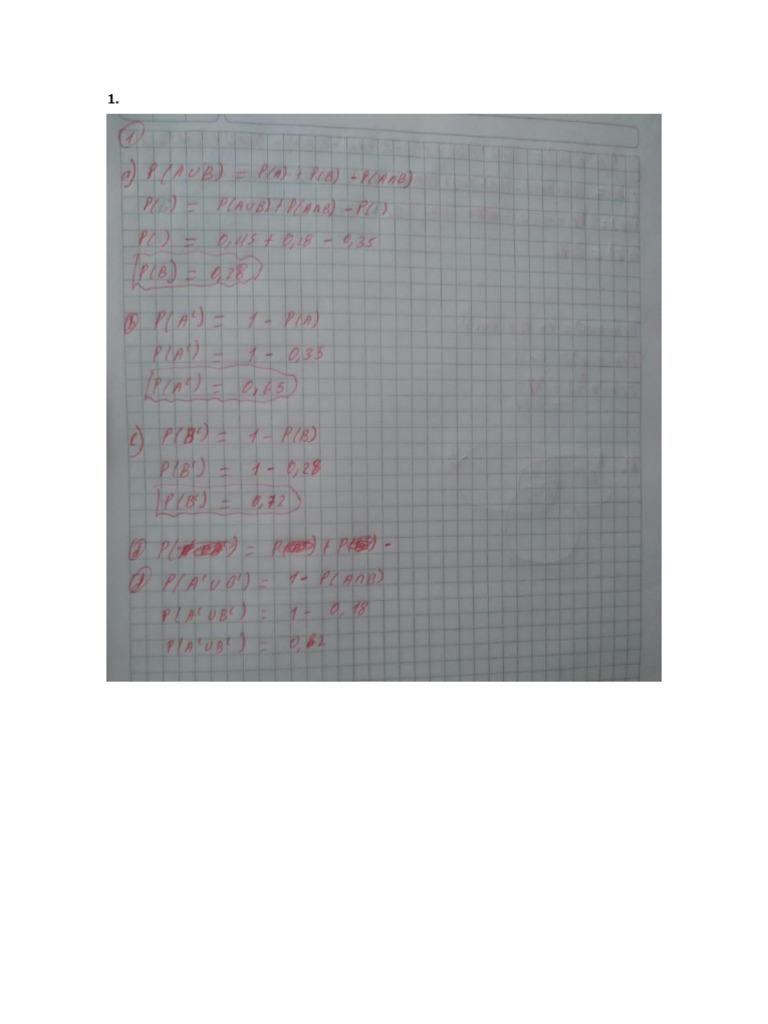 1.
1
a) P(A∪B) = P(A) + P(B) - P(A∩B)
P( ) = P(A∪B) + P(A∩B) - P( )
P( ) = 0,45 + 0,18 - 0,35
P(B) = 0,28
b) P(Aᶜ) = 1 - P(A)
P(Aᶜ) = 1 - 0,35
P(Aᶜ) = 0,65
c) P(Bᶜ) = 1 - P(B)
P(Bᶜ) = 1 - 0,28
P(Bᶜ) = 0,72
d) P( ) = P( ) + P( ) -
d) P(Aᶜ∪Bᶜ) = 1 - P(A∩B)
P(Aᶜ∪Bᶜ) = 1 - 0,18
P(Aᶜ∪Bᶜ) =